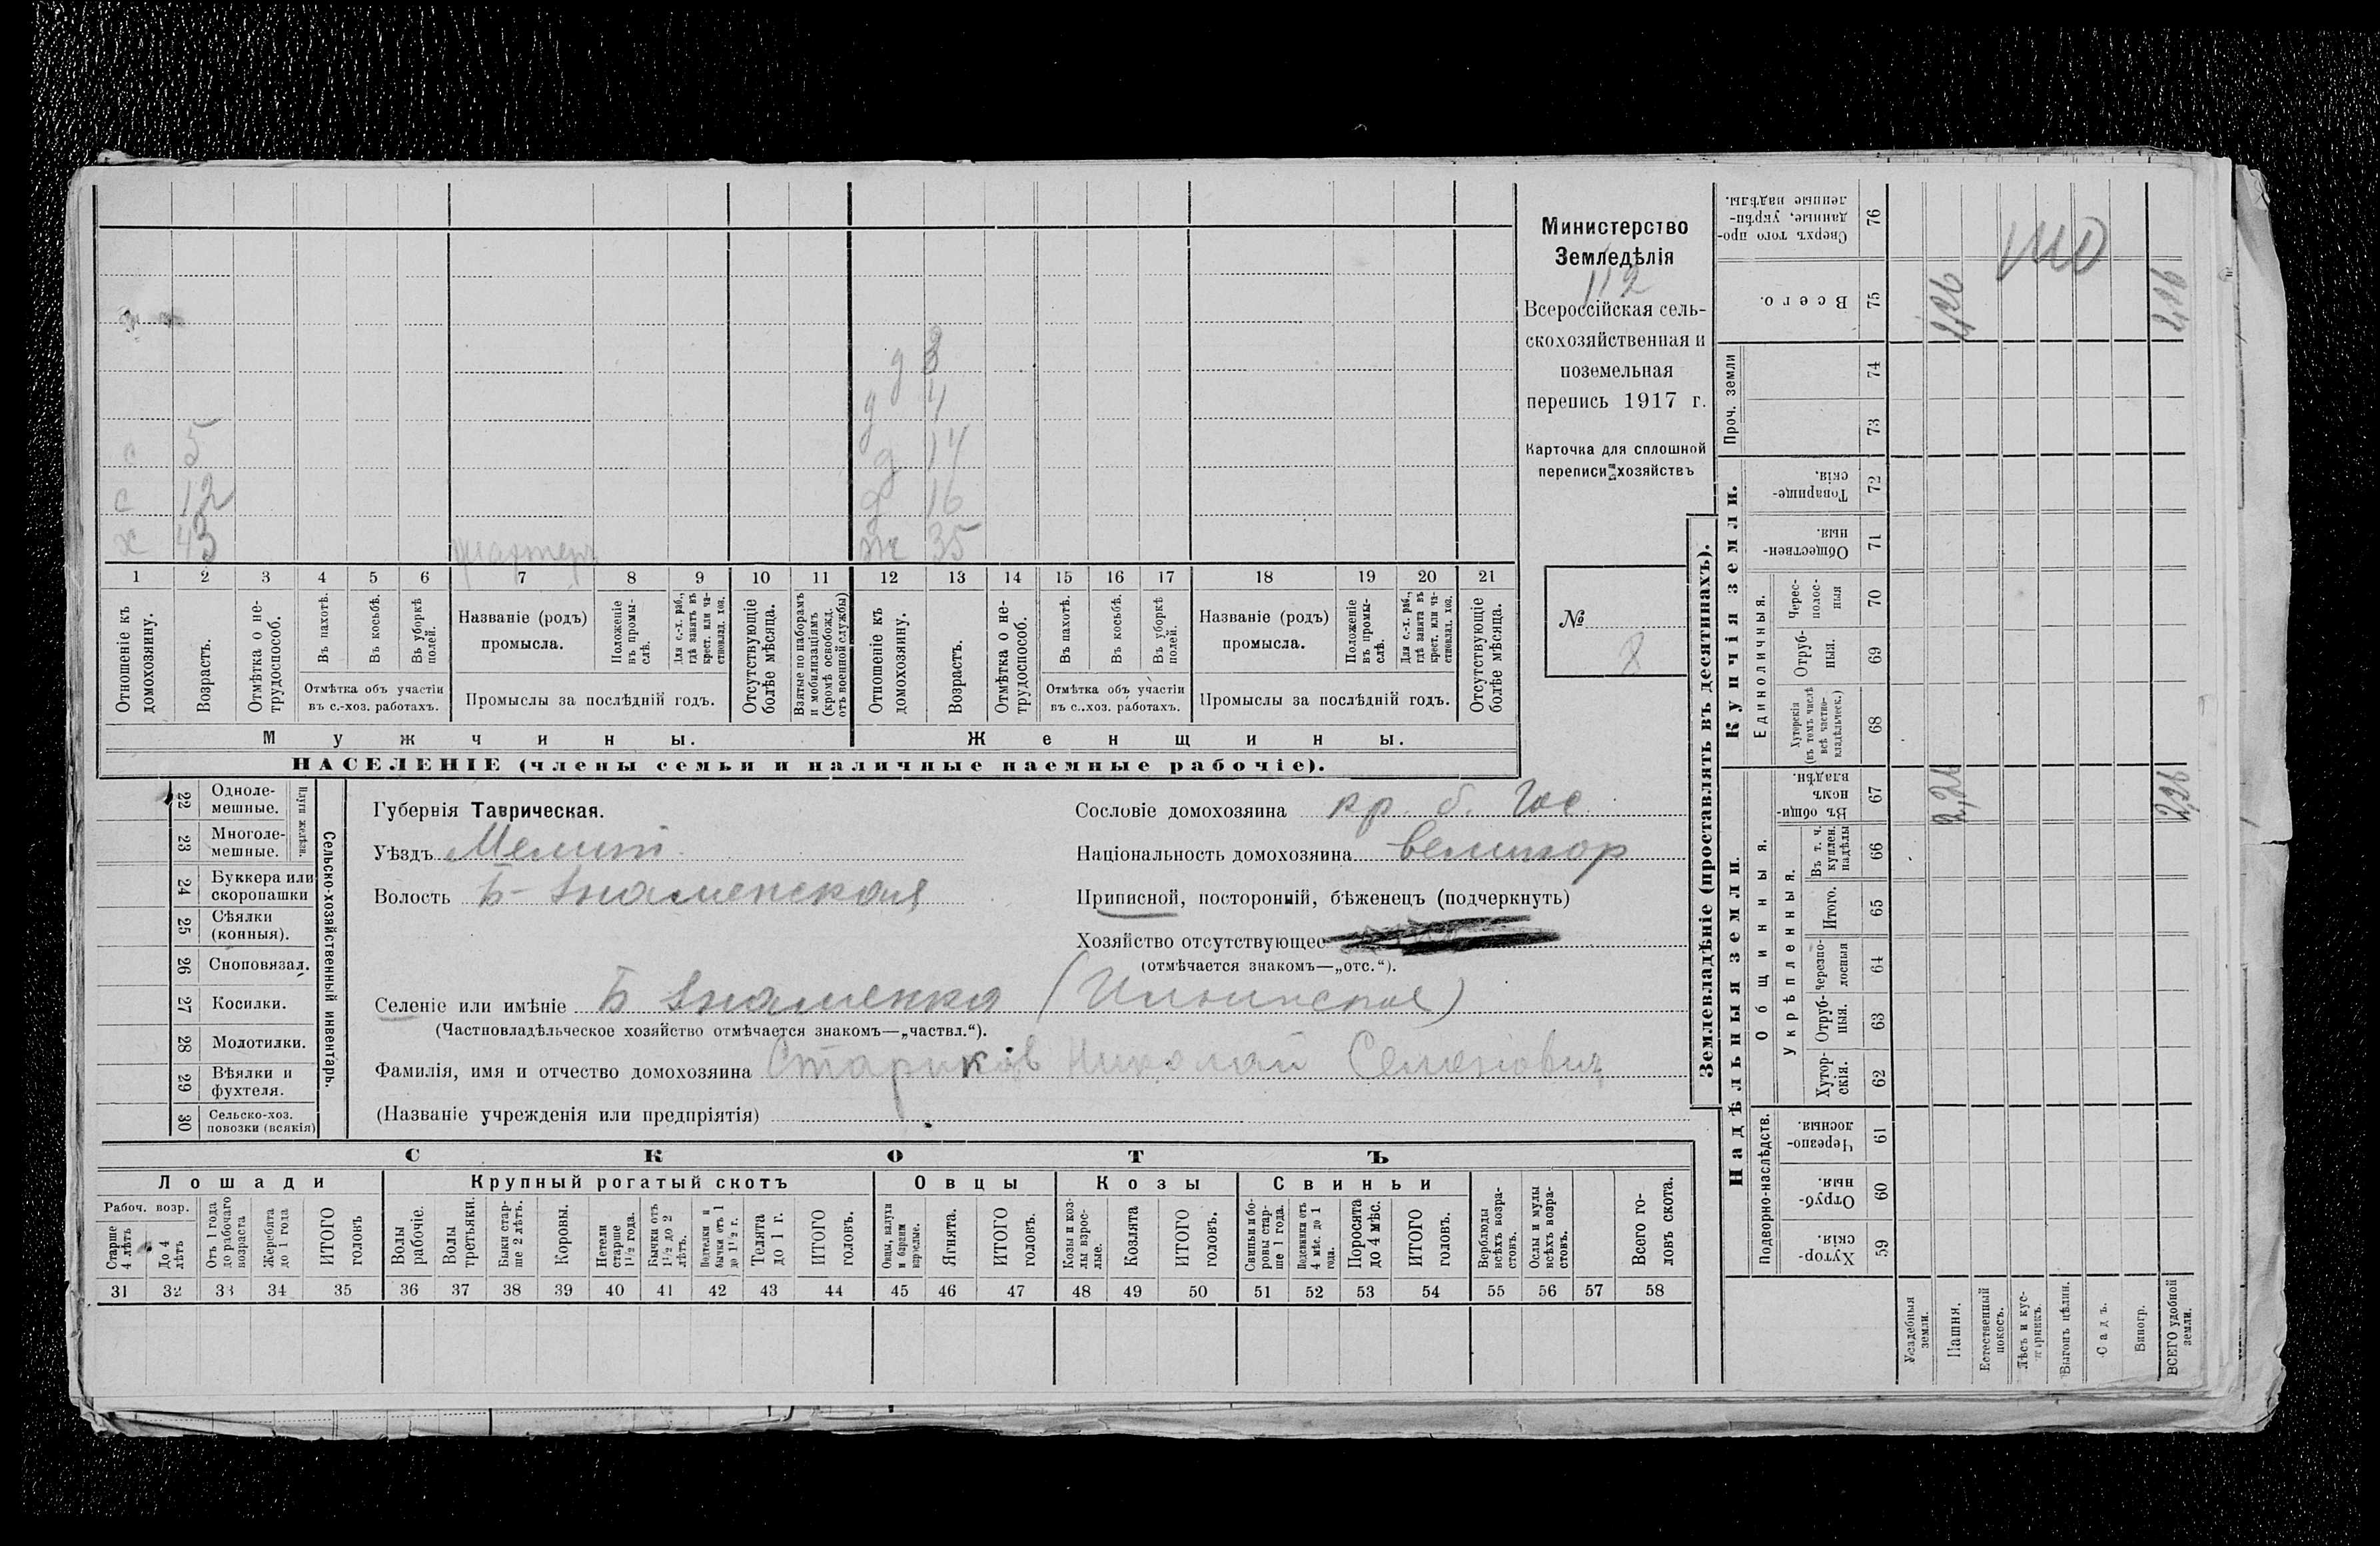 Министерство
Земледѣлія
112
Всероссійская сель-
скохозяйственная и
поземельная
перепись 1917 г.
Карточка для сплошной
переписи хозяйствъ
№
8
с 5
с 12
х 43
д 3
д 4
д 14
д 16
ж 35
1 2 3 4 5 6 7 8 9 10 11 12 13 14 15 16 17 18 19 20 21
Отношеніе къ домохозяину.
Возрастъ.
Отмѣтка о не-трудоспособ.
Въ пахотѣ.
Въ косьбѣ.
Въ уборкѣ полей.
Отмѣтка объ участіи
въ с.-хоз. работахъ.
Названіе (родъ)
промысла.
Положеніе въ промы-слѣ.
Для с.-х. раб., гдѣ занятъ въ крест. или ча-стновлад. хоз.
Промыслы за послѣдній годъ.
Отсутствующіе болѣе мѣсяца.
Взятые по наборамъ и мобилизаціямъ (кромѣ освобожд. отъ военной службы)
Отношеніе къ домохозяину.
Возрастъ.
Отмѣтка о не-трудоспособ.
Въ пахотѣ.
Въ косьбѣ.
Въ уборкѣ полей.
Отмѣтка объ участіи
въ с..хоз. работахъ.
Названіе (родъ)
промысла.
Положеніе въ промы-слѣ.
Для с.-х. раб., гдѣ занята въ крест. или ча-стновлад. хоз.
Промыслы за послѣдній годъ.
Отсутствующіе болѣе мѣсяца.
Мужчины.
Женщины.
НАСЕЛЕНІЕ (члены семьи и наличные наемные рабочіе).
22 Одноле-мешные.
23 Многоле-мешные.
Плуги желѣзн.
24 Буккера или скоропашки
25 Сѣялки (конныя).
26 Сноповязал.
27 Косилки.
28 Молотилки.
29 Вѣялки и фухтеля.
30 Сельско-хоз. повозки (всякія)
Сельско-хозяйственный инвентарь.
Губернія Таврическая.
Уѣздъ Мелит
Волость Б-Знаменская
Селеніе или имѣніе Б Знаменка (Ильинское)
(Частновладѣльческое хозяйство отмѣчается знакомъ—„частвл.“).
Фамилія, имя и отчество домохозяина Стариков Николай Семенович
(Названіе учрежденія или предпріятія)
Сословіе домохозяина кр. б. гос
Національность домохозяина великор
Приписной, посторонній, бѣженецъ (подчеркнуть)
Хозяйство отсутствующее
(отмѣчается знакомъ—„отс.“).
СКОТЪ
Лошади
Крупный рогатый скотъ
Овцы
Козы
Свиньи
Рабоч. возр.
Старше 4 лѣтъ
До 4 лѣтъ
Отъ 1 года до рабочаго возраста
Жеребята до 1 года
ИТОГО головъ
Волы рабочіе.
Волы третьяки.
Быки стар-ше 2 лѣтъ.
Коровы.
Нетели старше 1½ года.
Бычки отъ 1½ до 2 лѣтъ.
Подтелки и бычки отъ 1 до 1½ г.
Телята до 1 г.
ИТОГО головъ.
Овцы, валухи и бараны взрослые.
Ягнята.
ИТОГО головъ.
Козы и коз-лы взрос-лые.
Козлята
ИТОГО головъ.
Свиньи и бо-ровы стар-ше 1 года.
Подсвинки отъ 4 мѣс. до 1 года.
Поросята до 4 мѣс.
ИТОГО головъ.
Верблюды всѣхъ возра-стовъ.
Ослы и мулы всѣхъ возра-стовъ.
Всего го-ловъ скота.
31 32 33 34 35 36 37 38 39 40 41 42 43 44 45 46 47 48 49 50 51 52 53 54 55 56 57 58
Землевладѣніе (проставлять въ десятинахъ).
Надѣльныя земли.
Купчія земли.
Проч. земли
Подворно-наслѣдств.
Общинныя.
Укрѣпленныя.
Единоличныя.
59 Хутор-скія.
60 Отруб-ныя.
61 Черезпо-лосныя.
62 Хутор-скія.
63 Отруб-ныя.
64 Черезпо-лосныя
65 Итого.
66 Въ т. ч. куплен. надѣлы
67 Въ общин-номъ владѣн.
68 Хуторскія (въ томъ числѣ всѣ частно-владѣльческ.)
69 Отруб-ныя.
70 Черес-полос-ныя
71 Обществен-ныя.
72 Товарище-скія.
73
74
75 Всего.
76 Сверхъ того про-данные, укрѣп-ленные надѣлы.
Усадебныя земли.
Пашня.
2,26
2,26
Естественный покосъ.
Лѣсъ и кус-тарникъ.
Выгонъ цѣлин.
Садъ.
Виногр.
ВСЕГО удобной земли.
2,26
2,26